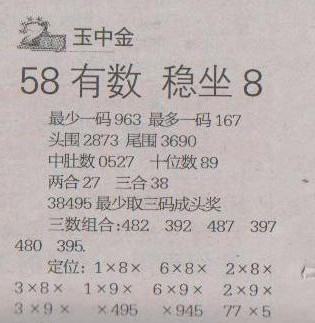 玉中金
58有数 稳坐8
最少一码963 最多一码167
头围2873 尾围3690
中肚数0527 十位数89
两合27 三合38
38495最少取三码成头奖
三数组合:482 392 487 397
480 395.
定位: 1×8× 6×8× 2×8×
3×8× 1×9× 6×9× 2×9×
3×9× ×495 ×945 77×5